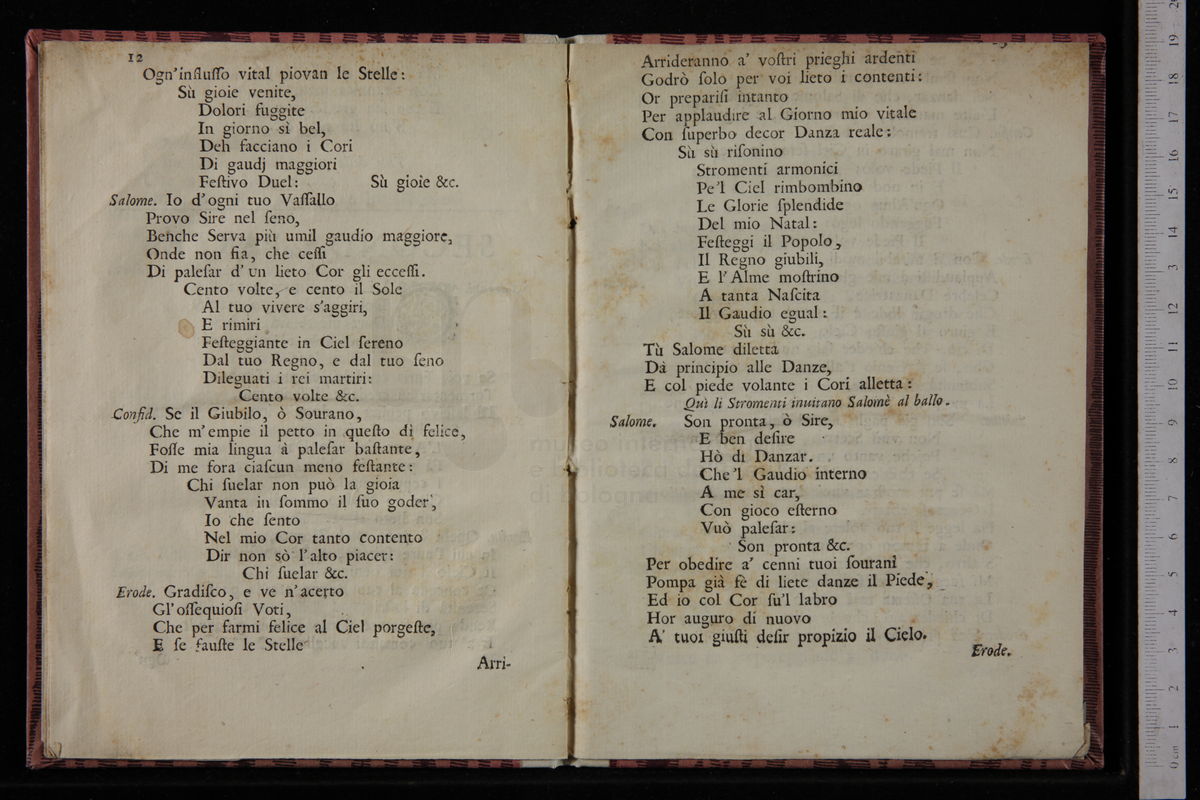 12
Ogn'influſſo vital piovan le Stelle:
Sù gioie venite,
Dolori fuggite
In giorno sì bel,
Deh facciano i Cori
Di gaudj maggiori
Feſtivo Duel: Sù gioie &c.
Salome. Io d'ogni tuo Vaſſallo
Provo Sire nel ſeno,
Benche Serva più umil gaudio maggiore,
Onde non fia, che ceſſi
Di paleſar d'un lieto Cor gli ecceſſi.
Cento volte, e cento il Sole
Al tuo vivere s'aggiri,
E rimiri
Feſteggiante in Ciel ſereno
Dal tuo Regno, e dal tuo ſeno
Dileguati i rei martiri:
Cento volte &c.
Confid. Se il Giubilo, ò Sourano,
Che m'empie il petto in queſto dì felice,
Foſſe mia lingua à paleſar baſtante,
Di me fora ciaſcun meno feſtante:
Chi ſuelar non può la gioia
Vanta in ſommo il ſuo goder,
Io che ſento
Nel mio Cor tanto contento
Dir non sò l'alto piacer:
Chi ſuelar &c.
Erode. Gradiſco, e ve n'acerto
Gl'oſſequioſi Voti,
Che per farmi felice al Ciel porgeſte,
E ſe fauſte le Stelle
Arri-
Arrideranno a' voſtri prieghi ardenti
Godrò ſolo per voi lieto i contenti:
Or prepariſi intanto
Per applaudire al Giorno mio vitale
Con ſuperbo decor Danza reale:
Sù sù riſonino
Stromenti armonici
Pe'l Ciel rimbombino
Le Glorie ſplendide
Del mio Natal:
Feſteggi il Popolo,
Il Regno giubili,
E l'Alme moſtrino
A tanta Naſcita
Il Gaudio egual:
Sù sù &c.
Tù Salome diletta
Dà principio alle Danze,
E col piede volante i Cori alletta:
Quì li Stromenti inuitano Salomè al ballo.
Salome. Son pronta, ò Sire,
E ben deſire
Hò di Danzar.
Che'l Gaudio interno
A me sì car,
Con gioco eſterno
Vuò paleſar:
Son pronta &c.
Per obedire a' cenni tuoi ſourani
Pompa già fè di liete danze il Piede,
Ed io col Cor ſu'l labro
Hor auguro di nuovo
A' tuoi giuſti deſir propizio il Cielo.
Erode.